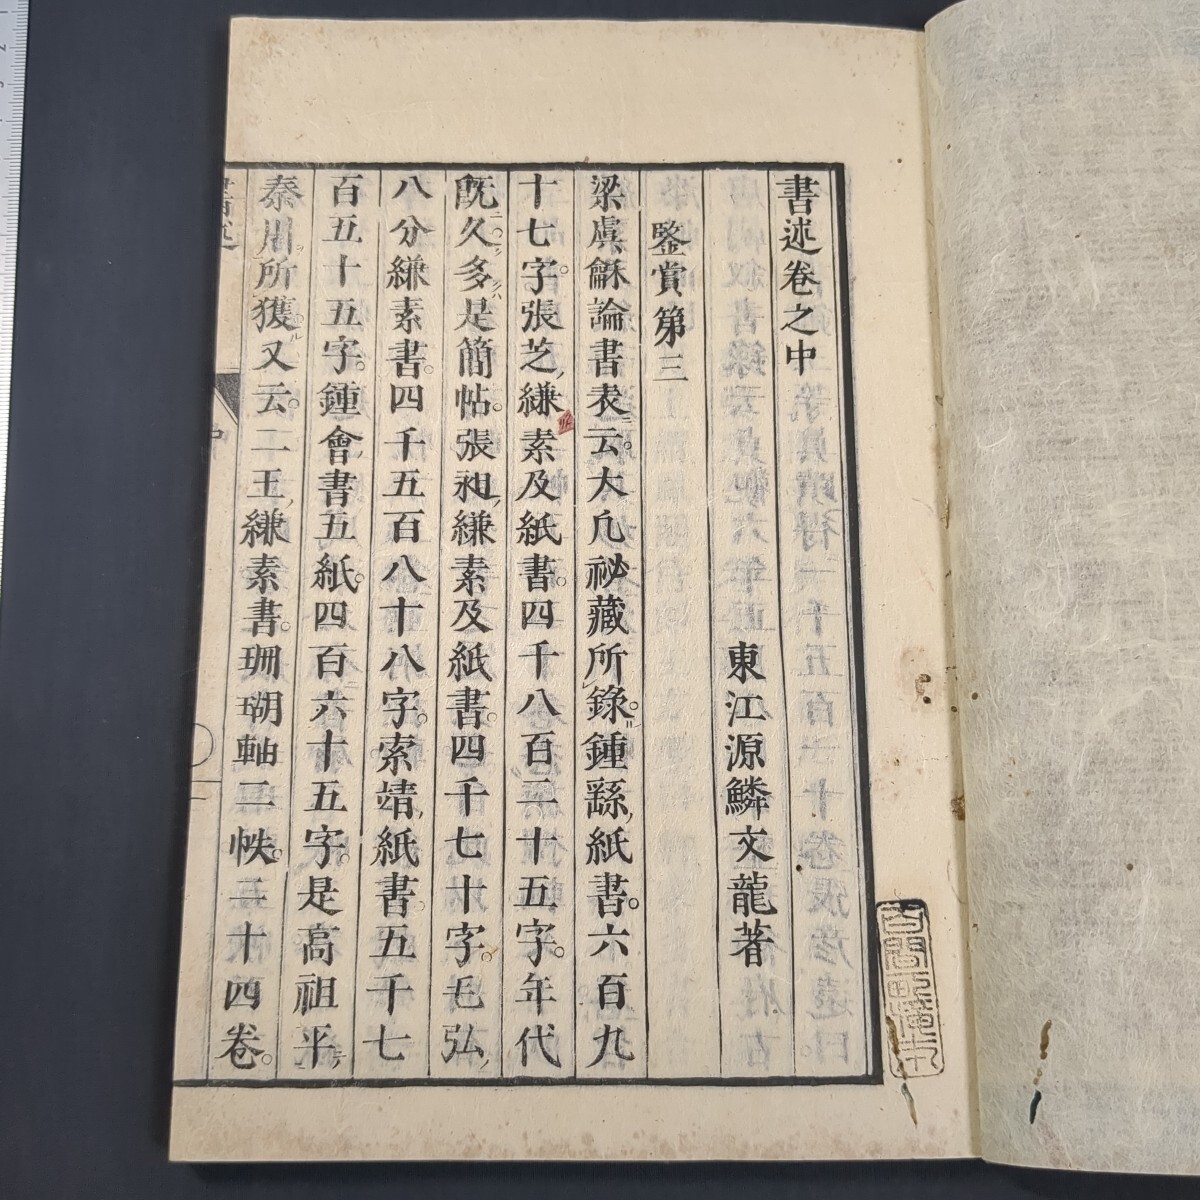 書述卷之中
東江源鱗文龍著
鑒賞第三
梁虞龢論書表云。大凡祕藏所錄。鍾繇紙書。六百九
十七字。張芝縑素及紙書。四千八百二十五字。年代
既久多是簡帖。張昶縑素及紙書。四千七十字。毛弘
八分縑素書。四千五百八十八字。索靖紙書五千七
百五十五字。鍾會書五紙。四百六十五字。是高祖平
秦川所獲又云。二王縑素書。珊瑚軸二帙。二十四卷。
書述
中